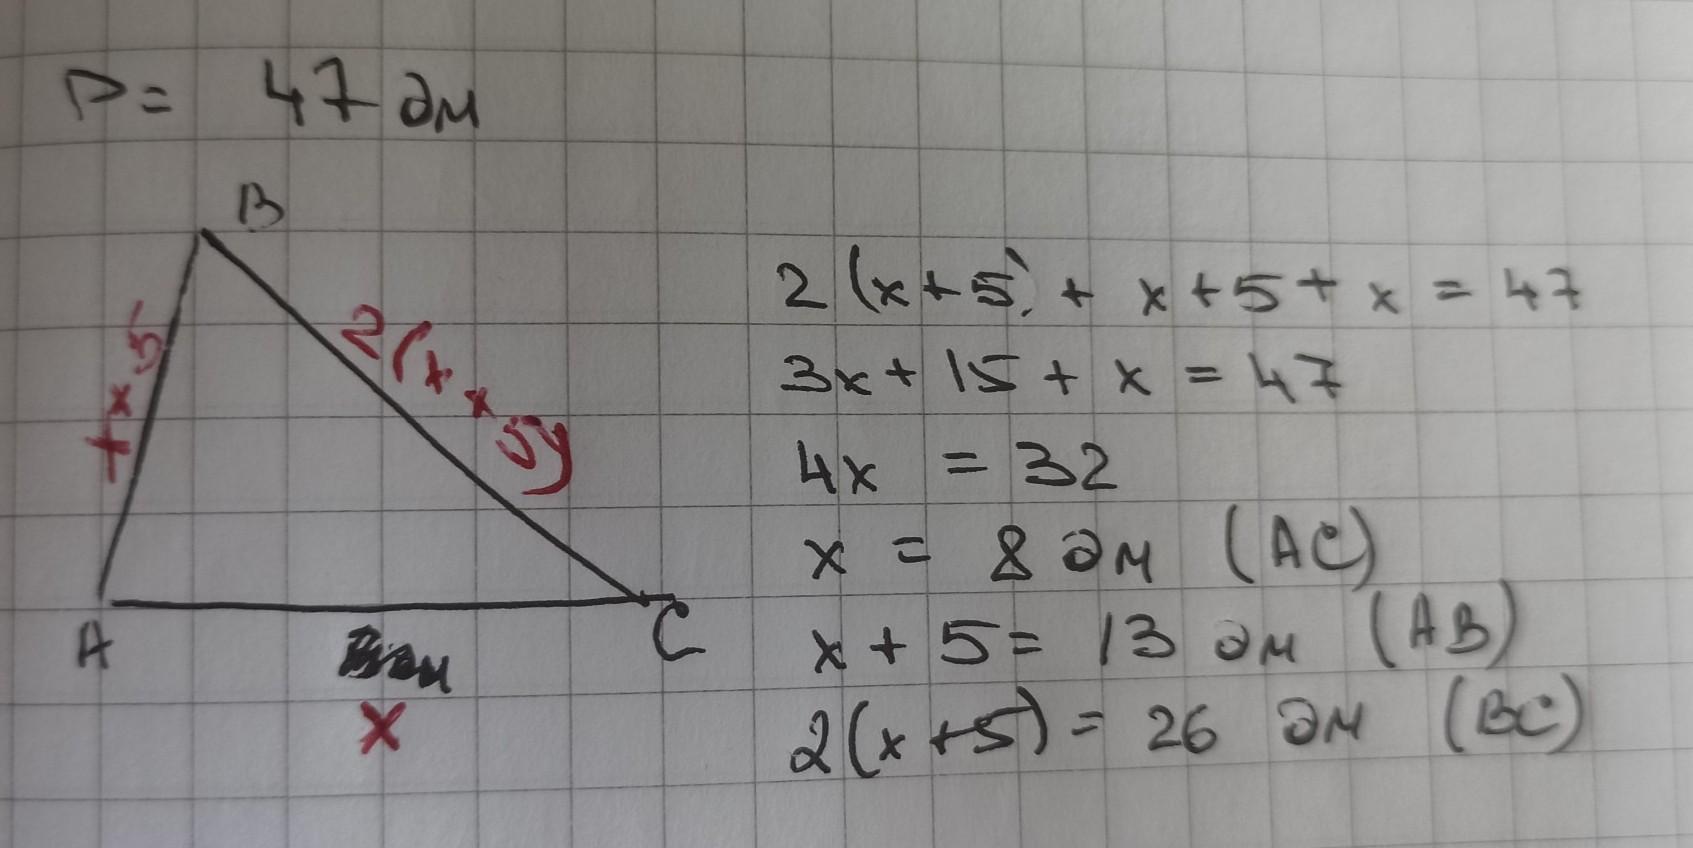 P = 47 дм
B
x + 5
2(x + 5)
A
C
x
2(x+5) + x+5+x = 47
3x+15+x = 47
4x = 32
x = 8 дм (AC)
x + 5 = 13 дм (AB)
2(x+5) = 26 дм (BC)